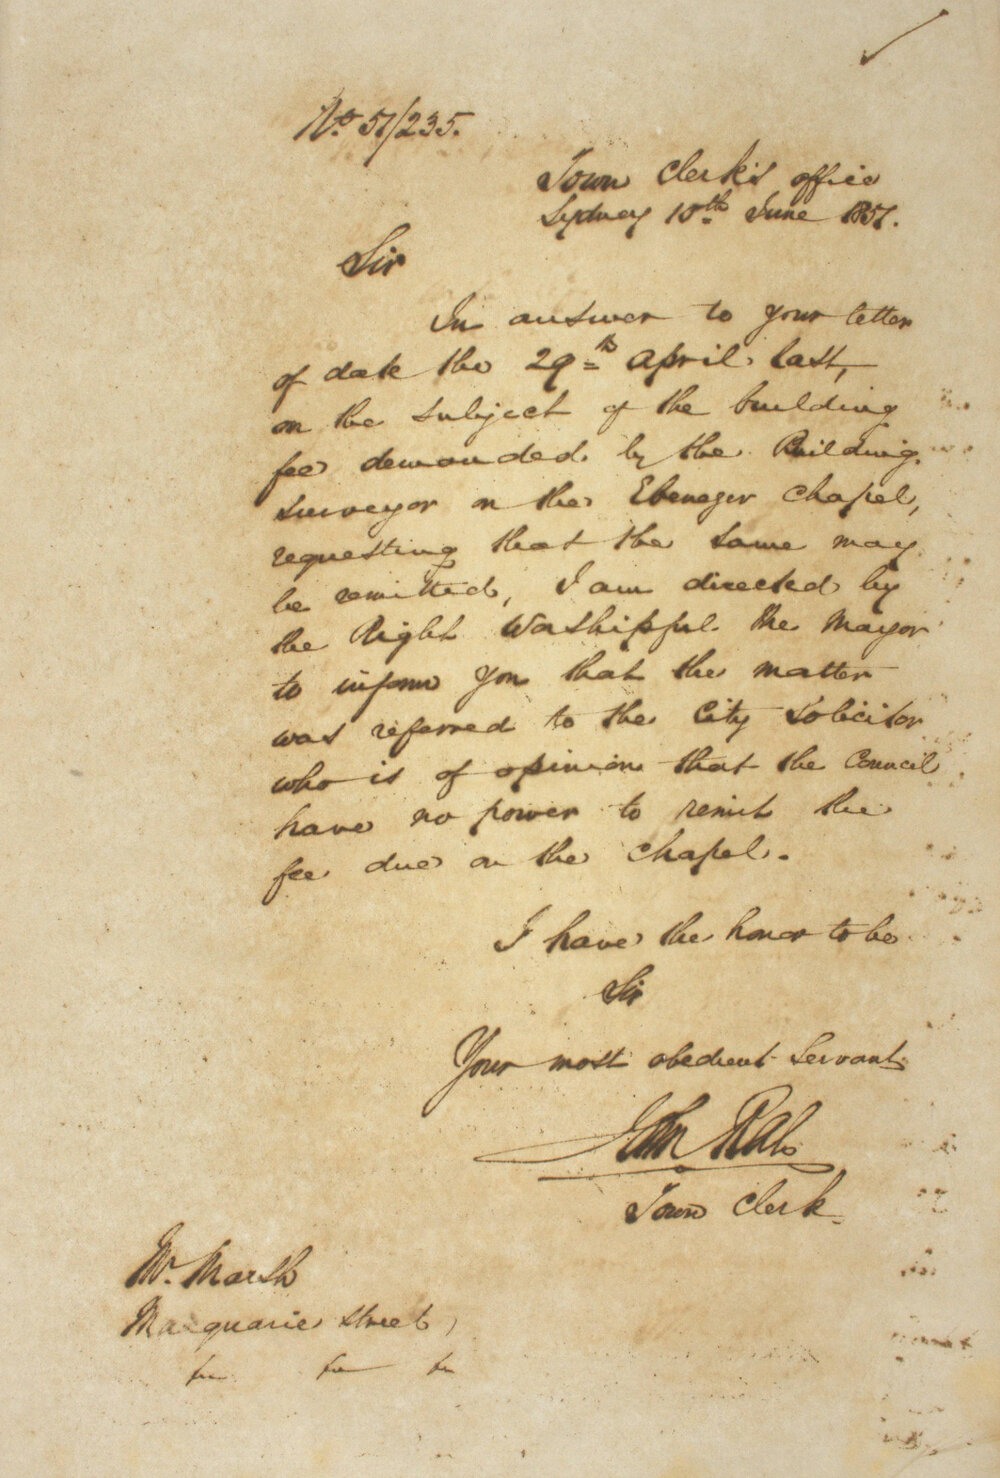 No. 51/235.
Town Clerk's office
Sydney 10th June 1851.
Sir
In answer to your letter
of date the 29th April last,
on the subject of the building
fee demanded by the Building
surveyor on the Ebenezer Chapel,
requesting that the same may
be remitted, I am directed by
the Right Worshipful the Mayor
to inform you that the matter
was referred to the City Solicitor
who is of opinion that the Council
have no power to remit the
fee due on the chapel.
I have the honor to be
Sir
Your most obedient Servant
John Rae
Town Clerk
Mr. Marsh
Macquarie Street